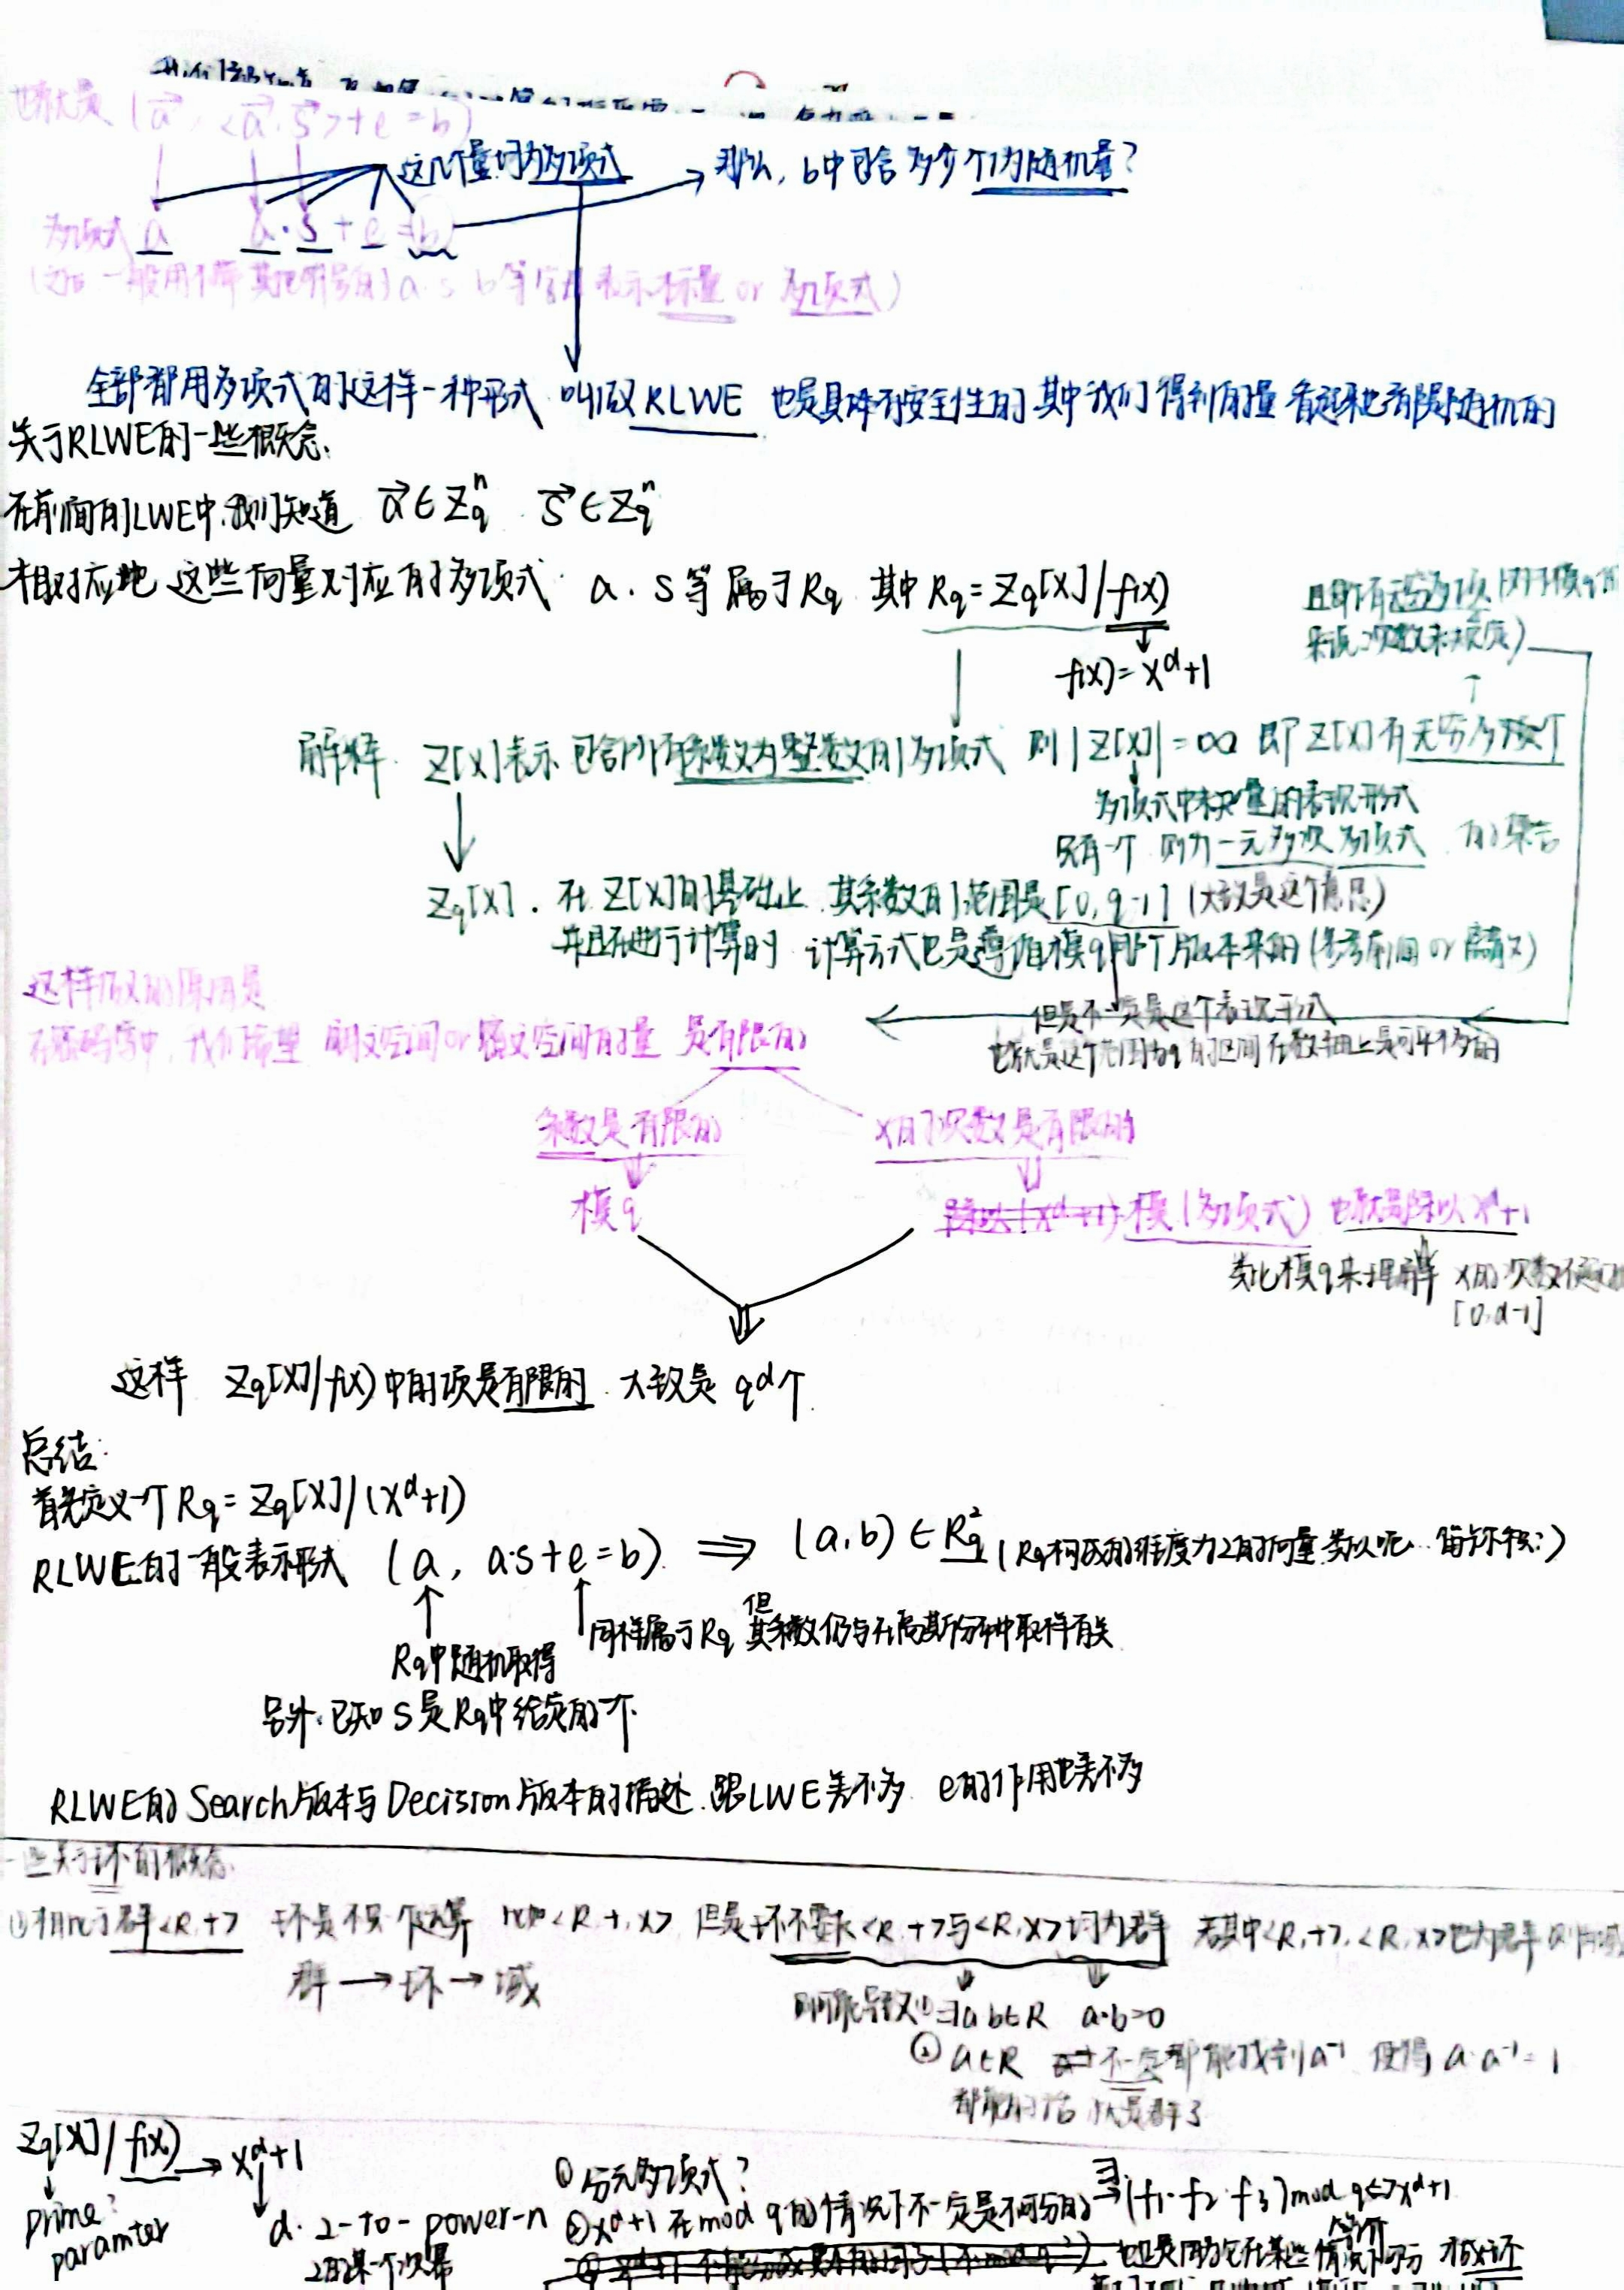 也就是 (a⃗, <a⃗·s⃗>+e=b)
这几个量均为多项式 → 那么, b中包含多少个行为随机量?
多项式 a a·s+e=b
a s b等 表示标量 or 多项式)
全部都用多项式的这样一种形式 叫做RLWE 也是具有安全性的 其中我们得到的量 看起来也都是随机的
关于RLWE的一些概念.
在前面的LWE中,我们知道 a⃗∈Zqⁿ s⃗∈Zqⁿ
相对应地 这些向量对应的多项式 a.s等属于Rq 其中 Rq=Zq[X]/f(x)
f(x)=x^d+1
且
来说 次数未
解释. Z[X]表示 包含所有系数为整数的多项式 则|Z[X]|=∞ 即Z[X]有无穷多项
多项式中未知量的表现形式
只有一个 则为一元多次多项式
Zq[X]. 在Z[X]的基础上 其系数的范围是[0,q-1] (大致是这个意思)
并且在进行计算时 计算方式也是遵循模q那个版本来的 (参考前面or
但是不一定是这个表现形式
也就是这个范围为q的区间 在数轴上是可平移的
这样做的原因是
在密码学中,我们希望 明文空间or密文空间的量 是有限的
系数是有限的 x的次数是有限的
模q 模(多项式) 也就是除以x^d+1
类比模q来理解 x的次数
[0,d-1]
这样 Zq[X]/f(x)中的项是有限的. 大致是q^d个.
总结:
首先定义一个Rq=Zq[X]/(x^d+1)
RLWE的一般表示形式 (a, a·s+e=b) ⟹ (a,b)∈Rq² (Rq构成的维度为2的向量 类似吧 笛卡尔积:)
Rq中随机取得
同样属于Rq 但其系数仍与在高斯分布中取样有关
另外.已知s是Rq中给定的一个.
RLWE的Search版本与Decision版本的描述.跟LWE差不多 e的作用也差不多
一些关于环的概念.
①相比于群<R,+> 环是 运算 <R,+,×> 但是环不要求<R,+>与<R,×>均为群 若其中<R,+>,<R,×>也为群
群→环→域
则可能导致①∃a b∈R a·b=0
② a∈R 不一定都能找到a⁻¹ 使得a·a⁻¹=1
都能的话 就是群了
Zq[X]/f(x)→x^d+1
prime?
paramter
d. 2-to-power-n
2的某一个次幂
①分元多项式?
②x^d+1在mod q的情况下不一定是不可分的→∃(f1·f2·f3)mod q⇔x^d+1